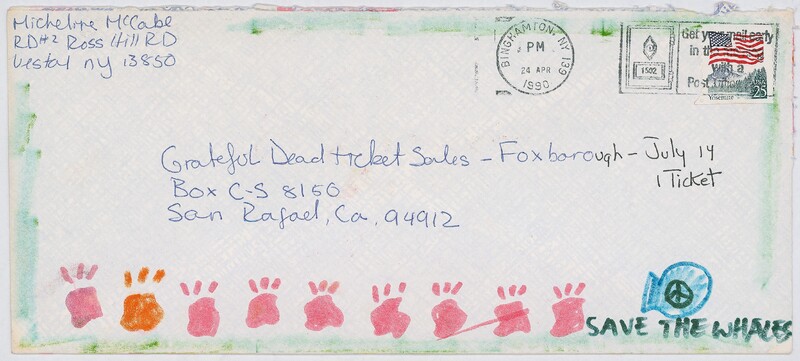 Micheline McCabe
RD#2 Ross Hill RD
Vestal ny 13850
BINGHAMTON, NY 139
PM
24 APR
1990
1502
Get your mail early
in the
with a
Post Office
Yosemite
USA
25
Grateful Dead ticket Sales - Foxborough - July 14
1 Ticket
Box C-S 8150
San Rafael, Ca. 94912
SAVE THE WHALES